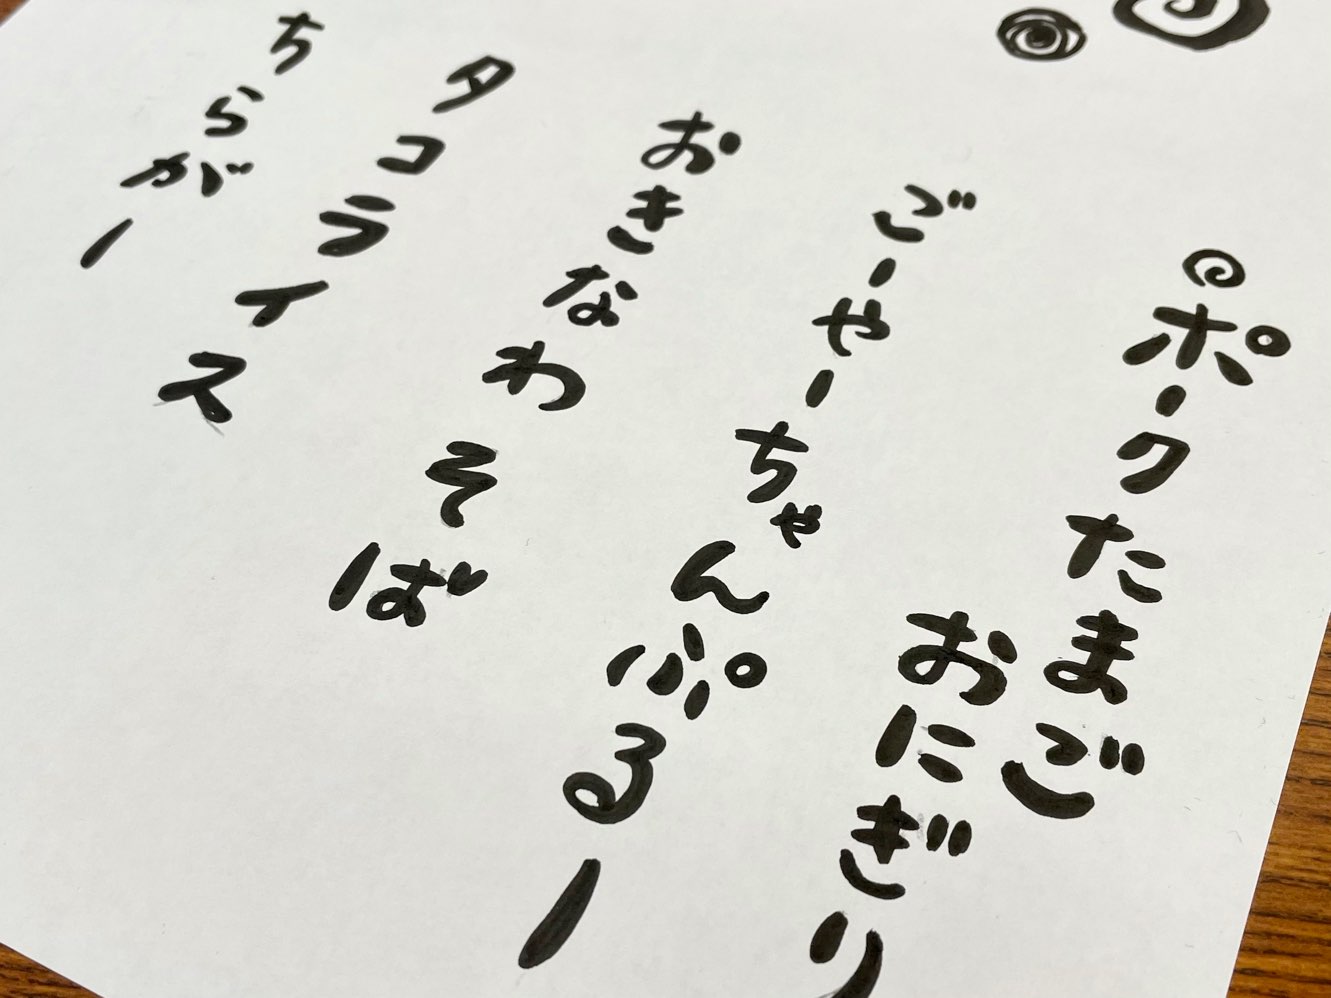 ポークたまご
おにぎり
ごーやーちゃんぷるー
おきなわそば
タコライス
ちらがー